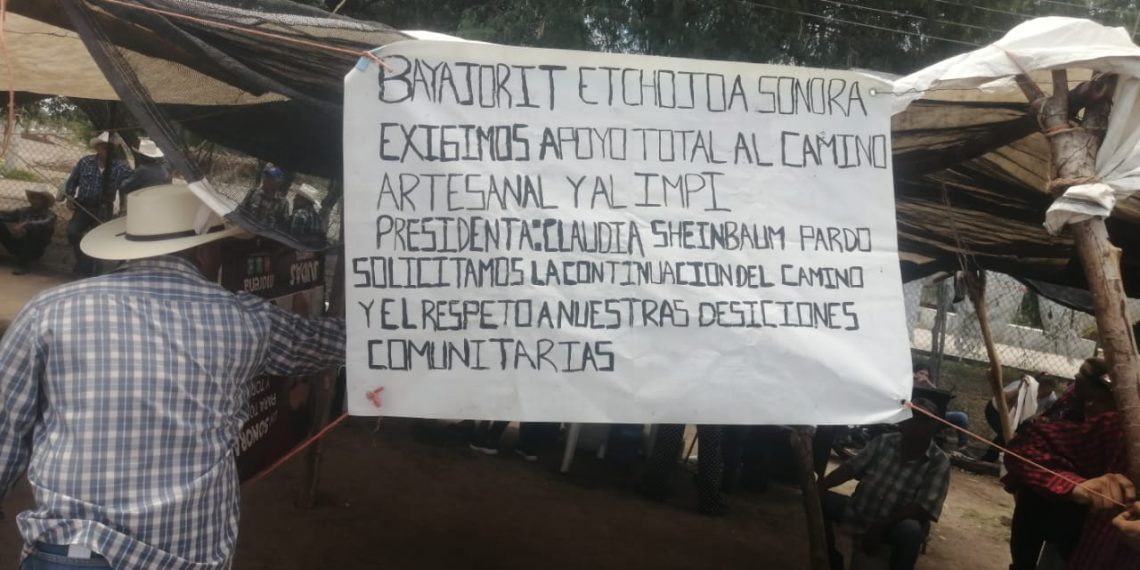 BAYAJORIT ETCHOJOA SONORA
EXIGIMOS APOYO TOTAL AL CAMINO
ARTESANAL Y AL IMPI
PRESIDENTA: CLAUDIA SHEINBAUM PARDO
SOLICITAMOS LA CONTINUACION DEL CAMINO
Y EL RESPETO A NUESTRAS DESICIONES
COMUNITARIAS